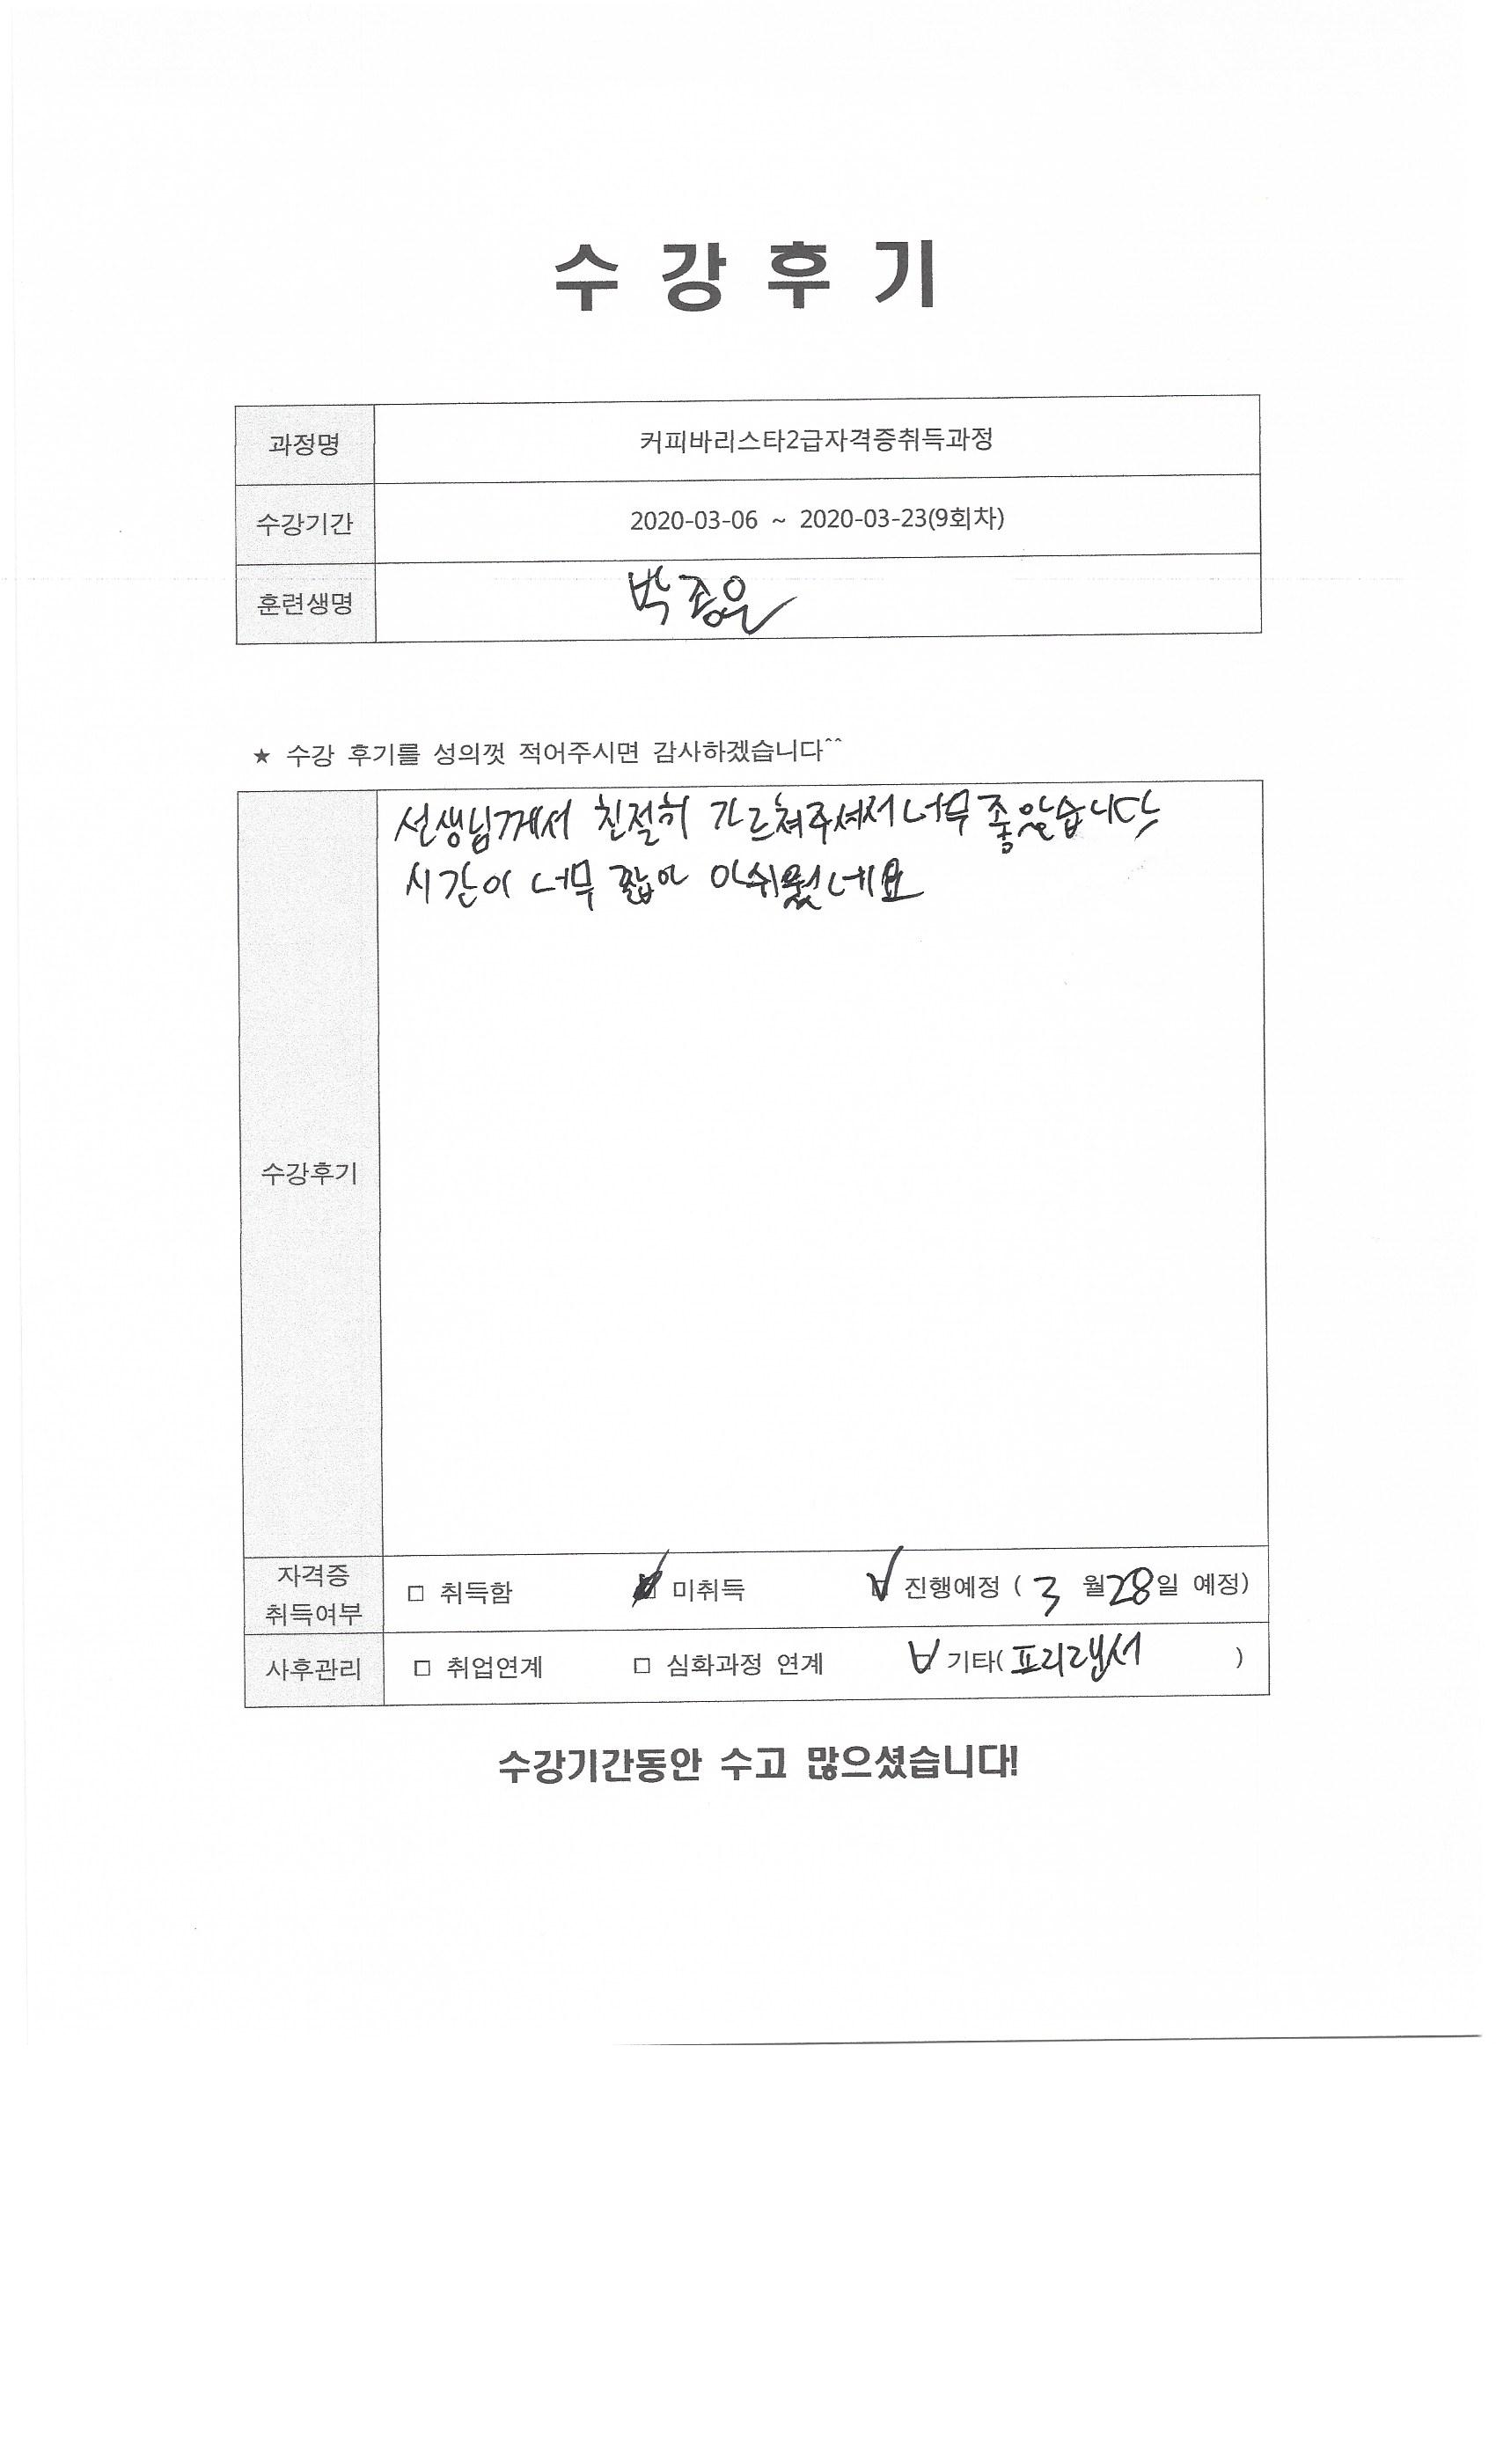 수 강 후 기
과정명 커피바리스타2급자격증취득과정
수강기간 2020-03-06 ~ 2020-03-23(9회차)
훈련생명 박종은
★ 수강 후기를 성의껏 적어주시면 감사하겠습니다^^
선생님께서 친절히 가르쳐주셔서 너무 좋았습니다
시간이 너무 짧아 아쉬웠네요
수강후기
자격증
취득여부
□ 취득함 미취득 ☑ 진행예정 ( 3 월 28일 예정)
사후관리 □ 취업연계 □ 심화과정 연계 ☑ 기타( 프리랜서 )
수강기간동안 수고 많으셨습니다!